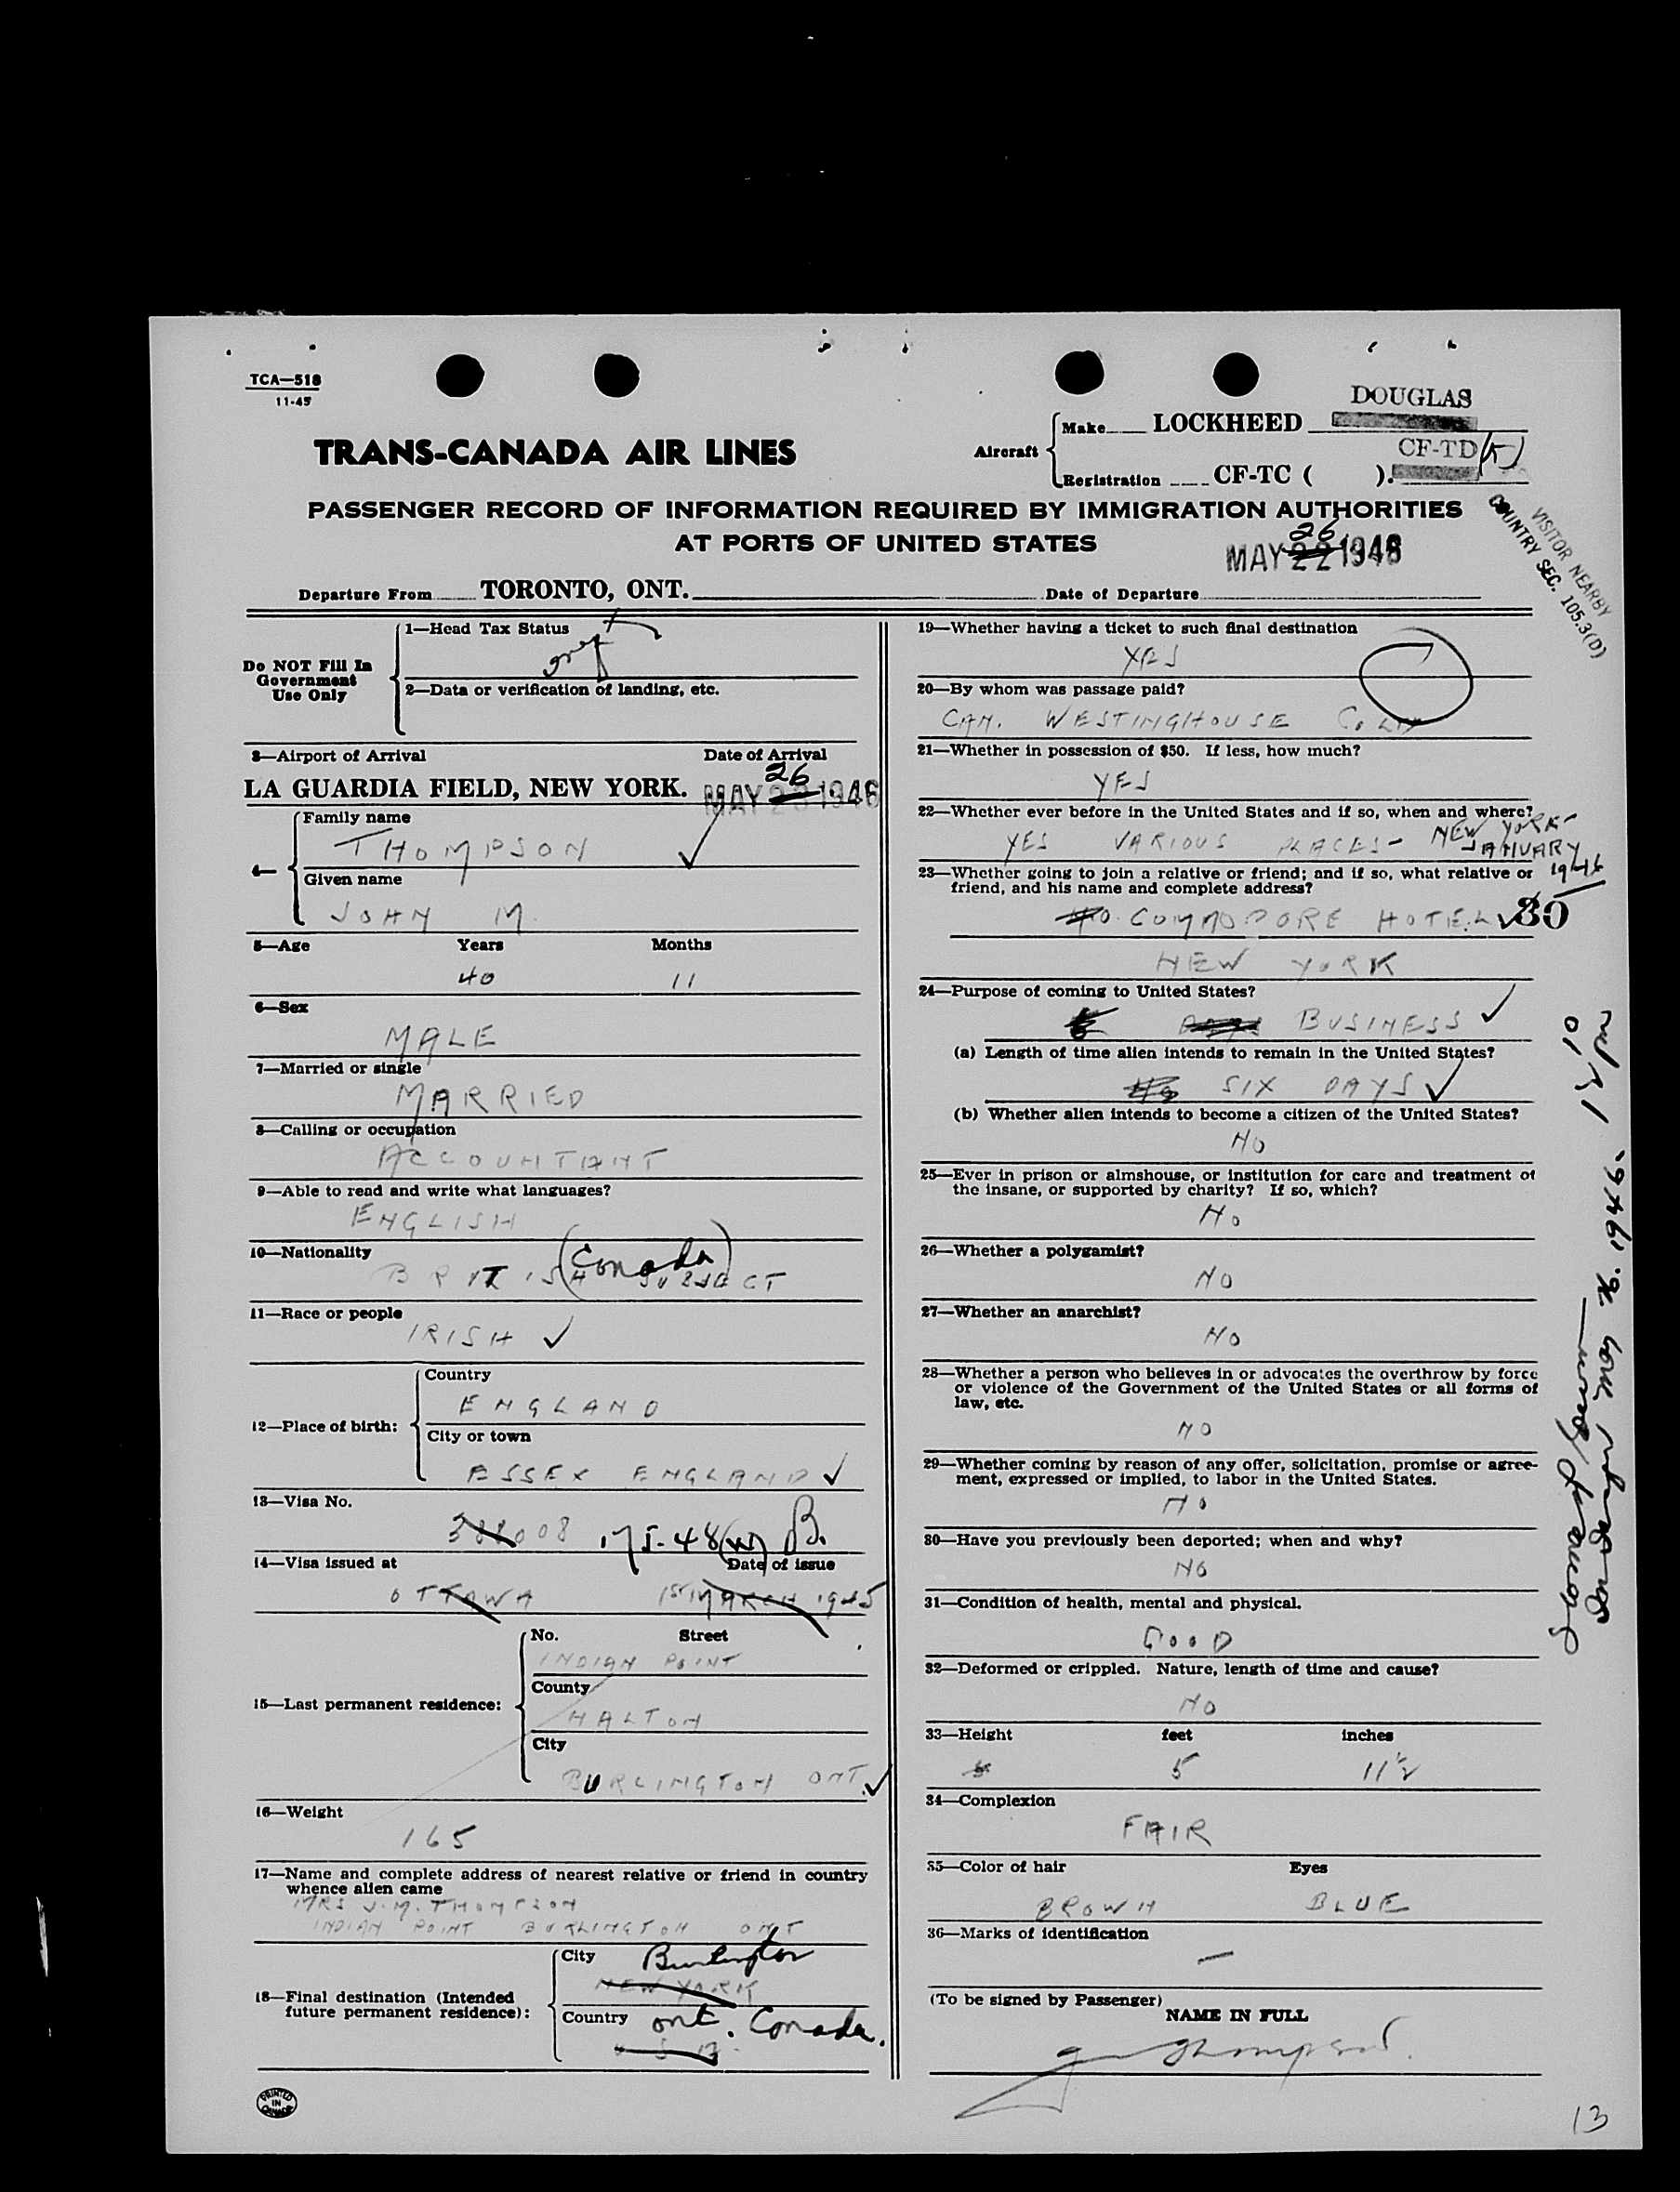 TCA—518
11-45
DOUGLAS
Aircraft
Make LOCKHEED
CF-TD(K)
Registration CF-TC ( ).
TRANS-CANADA AIR LINES
PASSENGER RECORD OF INFORMATION REQUIRED BY IMMIGRATION AUTHORITIES
AT PORTS OF UNITED STATES
26
MAY 22 1946
VISITOR NEARBY
COUNTRY SEC. 105.3(D)
Departure From TORONTO, ONT. Date of Departure
Do NOT Fill In
Government
Use Only
1—Head Tax Status
2—Data or verification of landing, etc.
3—Airport of Arrival Date of Arrival
26
LA GUARDIA FIELD, NEW YORK. MAY 23 1946
4—
Family name
THOMPSON
Given name
JOHN M.
5—Age Years Months
40 11
6—Sex
MALE
7—Married or single
MARRIED
8—Calling or occupation
ACCOUNTANT
9—Able to read and write what languages?
ENGLISH
10—Nationality
(Canada)
BRITISH SUBJECT
11—Race or people
IRISH
12—Place of birth:
Country
ENGLAND
City or town
ESSEX ENGLAND
13—Visa No.
008 175-48(W) B.
14—Visa issued at Date of issue
OTTAWA 1st MARCH 1945
15—Last permanent residence:
No. Street
INDIAN POINT
County
HALTON
City
BURLINGTON ONT.
16—Weight
165
17—Name and complete address of nearest relative or friend in country
whence alien came
MRS J.M. THOMPSON
INDIAN POINT BURLINGTON ONT
18—Final destination (Intended
future permanent residence):
City Burlington
NEW YORK
Country ont. Canada.
U S A.
PRINTED
IN
CANADA
19—Whether having a ticket to such final destination
YES
20—By whom was passage paid?
CAN. WESTINGHOUSE Co. LTD
21—Whether in possession of $50. If less, how much?
YES
22—Whether ever before in the United States and if so, when and where?
YES VARIOUS PLACES - NEW YORK -
JANUARY
1946
23—Whether going to join a relative or friend; and if so, what relative or
friend, and his name and complete address?
NO. COMMODORE HOTEL 30
NEW YORK
24—Purpose of coming to United States?
BUSINESS
(a) Length of time alien intends to remain in the United States?
SIX DAYS
(b) Whether alien intends to become a citizen of the United States?
NO
25—Ever in prison or almshouse, or institution for care and treatment of
the insane, or supported by charity? If so, which?
NO
26—Whether a polygamist?
NO
27—Whether an anarchist?
NO
28—Whether a person who believes in or advocates the overthrow by force
or violence of the Government of the United States or all forms of
law, etc.
NO
29—Whether coming by reason of any offer, solicitation, promise or agree-
ment, expressed or implied, to labor in the United States.
NO
30—Have you previously been deported; when and why?
NO
31—Condition of health, mental and physical.
GOOD
32—Deformed or crippled. Nature, length of time and cause?
NO
33—Height feet inches
5 11½
34—Complexion
FAIR
35—Color of hair Eyes
BROWN BLUE
36—Marks of identification
—
(To be signed by Passenger)
NAME IN FULL
Thompson.
13